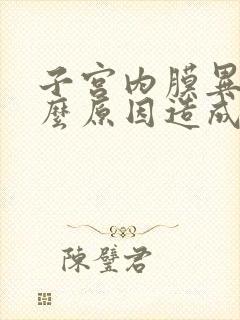 子宮內膜異
麼原因造成
陳璧君